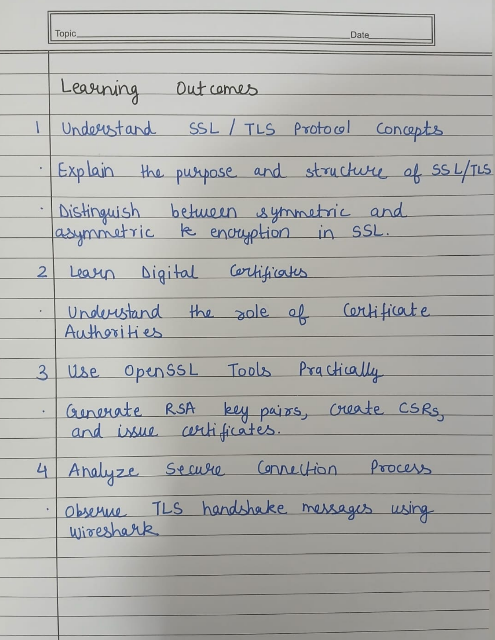 Topic Date
Learning Outcomes
1 Understand SSL / TLS Protocol Concepts
· Explain the purpose and structure of SSL/TLS
· Distinguish between symmetric and
asymmetric & encryption in SSL.
2 Learn Digital Certificates
· Understand the role of Certificate
Authorities
3 Use OpenSSL Tools Practically
· Generate RSA key pairs, create CSRs,
and issue certificates.
4 Analyze Secure Connection Process
· Observe TLS handshake messages using
Wireshark